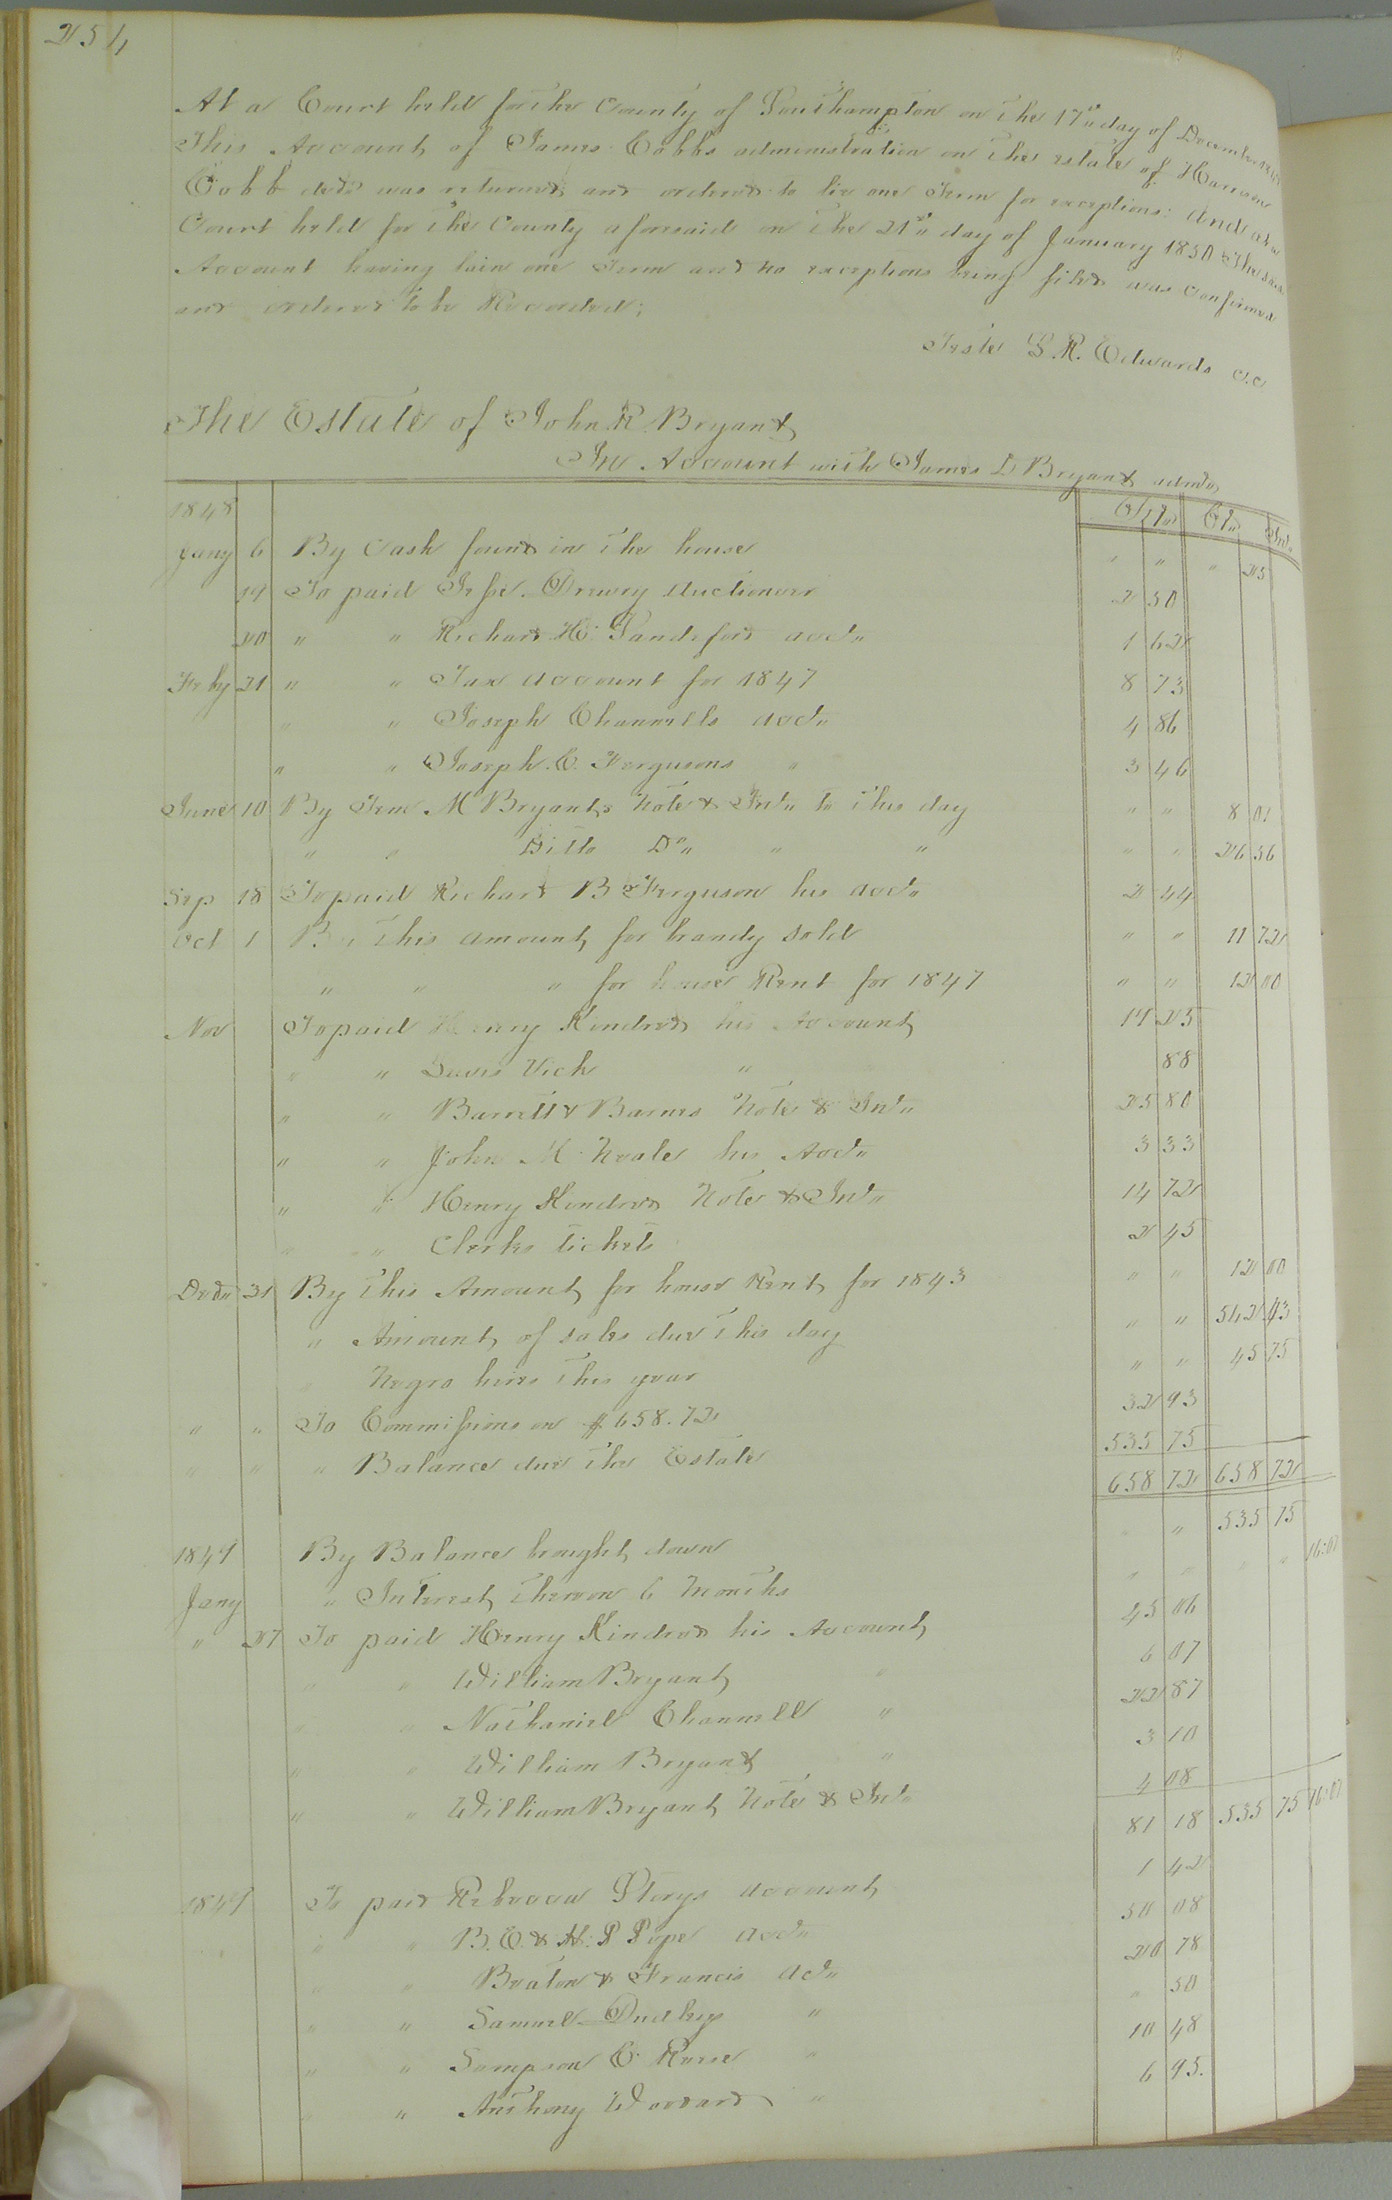 254
At a Court held for the County of Southampton on the 17th day of December
This Account of James Cobbs administration on the estate of Harrison
Cobb decd was returned and ordered to lie one Term for exceptions: And at a
Court held for the County aforesaid on the 21st day of January 1850 The said
Account having lain one Term and no exceptions being filed was confirmed
and ordered to be Recorded;
Teste L. R. Edwards C.C
The Estate of John R. Bryant
In Account with James D Bryant admr
1848 Drs Crs Int
Jany 6 By Cash found in the house " " " 25
19 To paid Jesse Drewry Auctioneer 2 50
20 " " Richard H. Sandiford acct 1 62
Feby 21 " " Tax account for 1847 8 73
" " Joseph Channells acct 4 86
" " Joseph C. Fergusons " 3 46
June 10 By Tem M Bryants Note & Int to this day " " 8 01
" " Ditto Do " " " " 26 56
Sep 18 To paid Richard B Ferguson his acct 2 44
Oct 1 By this amount for brandy sold " " 11 72
" " " for house Rent for 1847 " " 12 00
Nov To paid Henry Kindred his Account 19 25
" " Lewis Vick " 88
" " Barrett & Barnes Note & Int 25 80
" " John M. Neale his Acct 3 33
" " Henry Kindred Note & Int 14 72
" " Clerks tickets 2 45
Decr 31 By this Amount for house Rent for 1843 " " 12 00
" Amount of sales due this day " " 542 43
" Negro hires this year " " 45 75
" " To Commissions on $658.72 32 93
" " " Balance due the Estate 535 75
658 72 658 72
1849 By Balance brought down " 535 75
Jany " Interest thereon 6 Months " " " " 16:07
" 27 To paid Henry Kindred his Account 45 06
" " William Bryant " 6 07
" " Nathaniel Channell " 22 87
" " William Bryant " 3 10
" " William Bryant Note & Int 4 08
81 18 535 75 16:07
1849 To paid Rebecca Storys account 1 42
" " B. C. & H. P Pope acct 50 08
" " Beaton & Francis act 20 78
" " Samuel Dudley " " 50
" " Sampson C. Reese " 10 48
" " Anthony Woodard " 6 95.